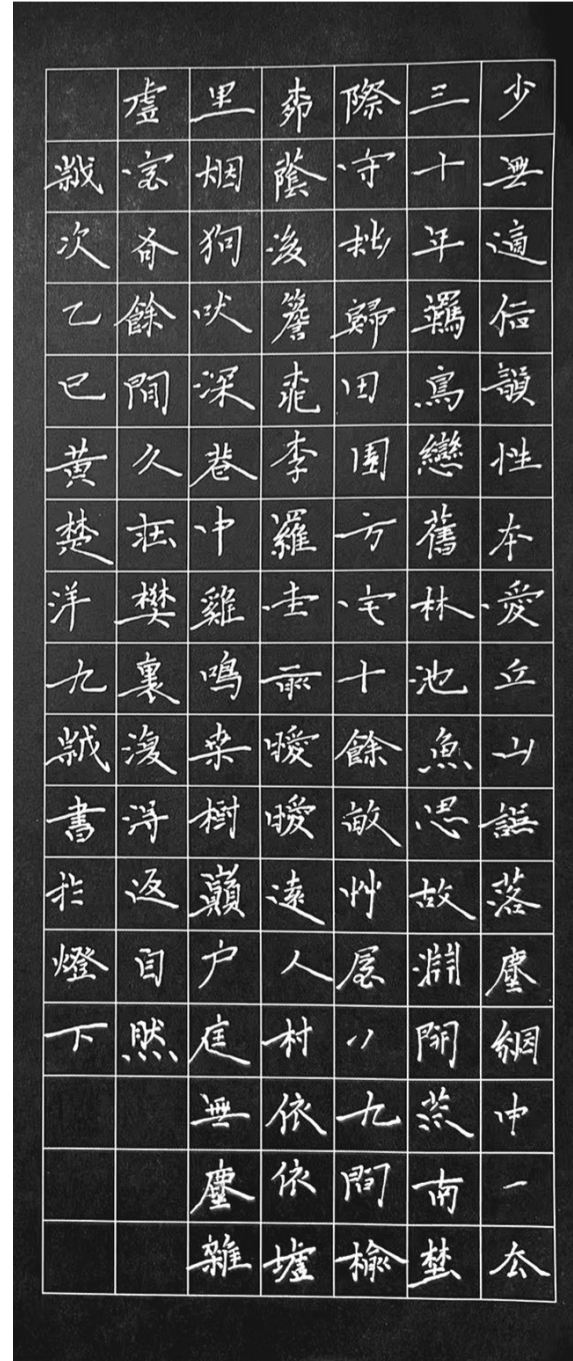 少無適俗韻性本愛丘山誤落塵網中一去
三十年羈鳥戀舊林池魚思故淵開荒南埜
際守拙歸田園方宅十餘畝艸屋八九間榆
桺蔭後簷桃李羅堂前曖曖遠人村依依墟
里烟狗吠深巷中雞鳴桑樹巔户庭無塵雜
虛室有餘間久在樊裏復得返自然
歲次乙巳黃楚洋九歲書於燈下